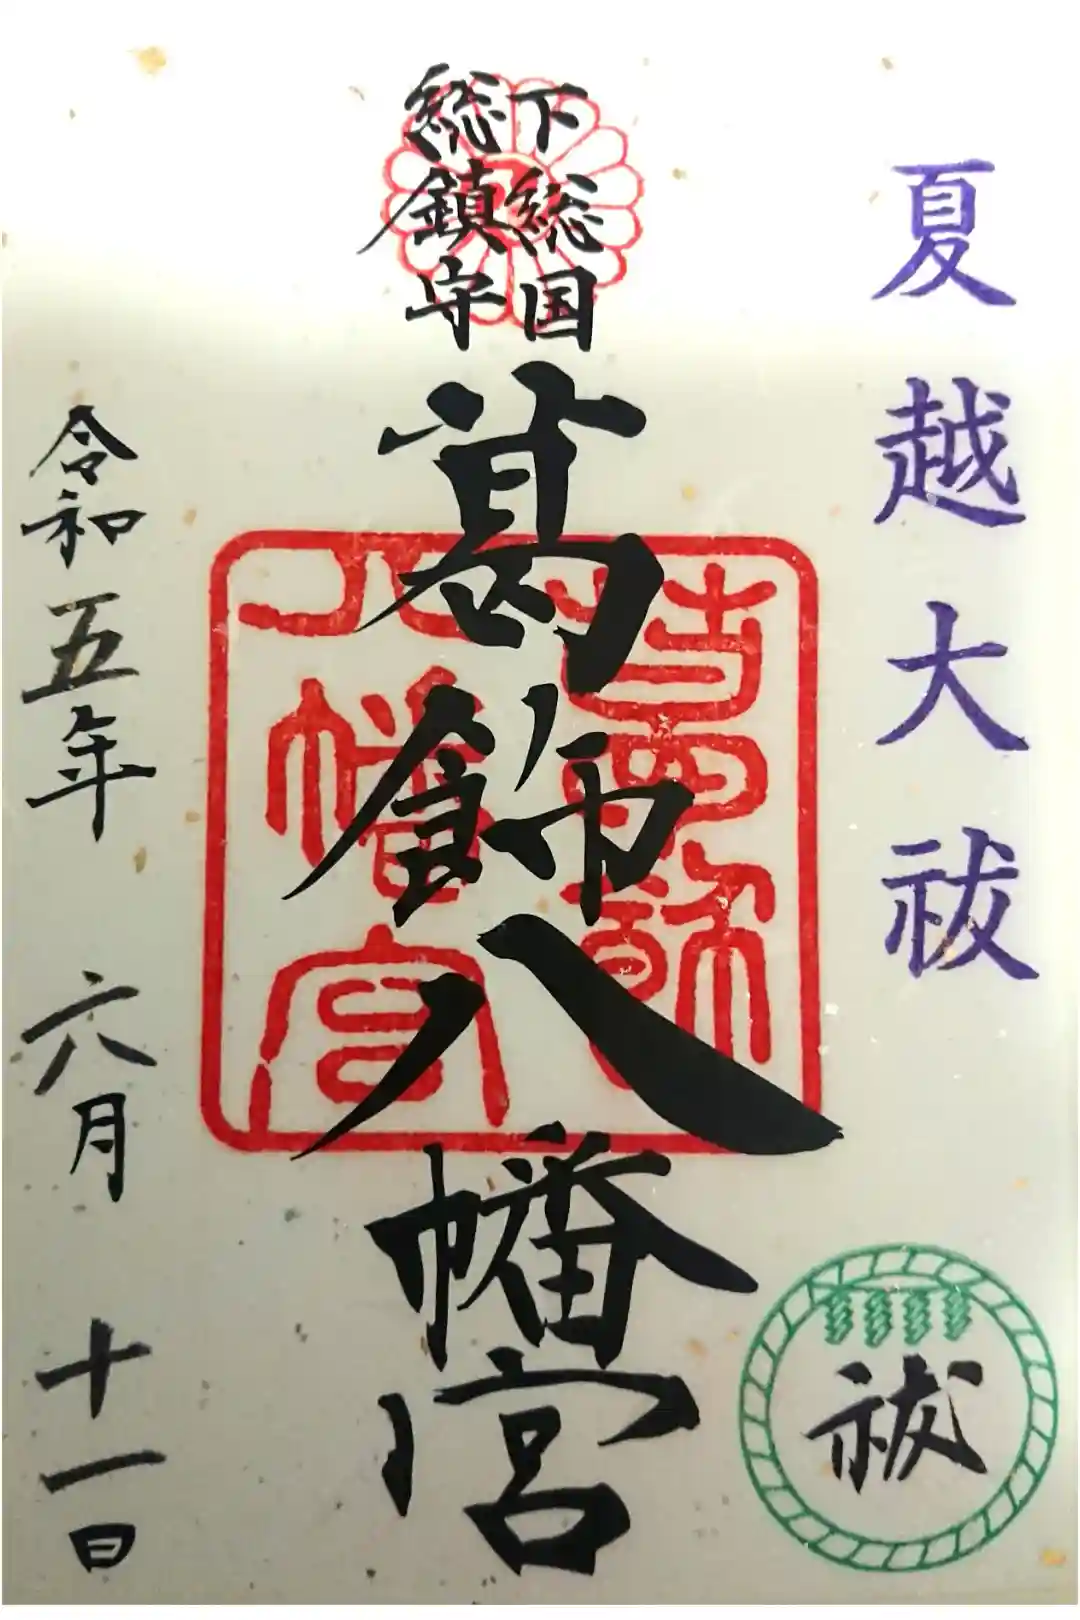 夏越大祓
祓
下総国
総鎮守
葛飾八幡宮
令和五年 六月 十一日
葛飾
八幡宮